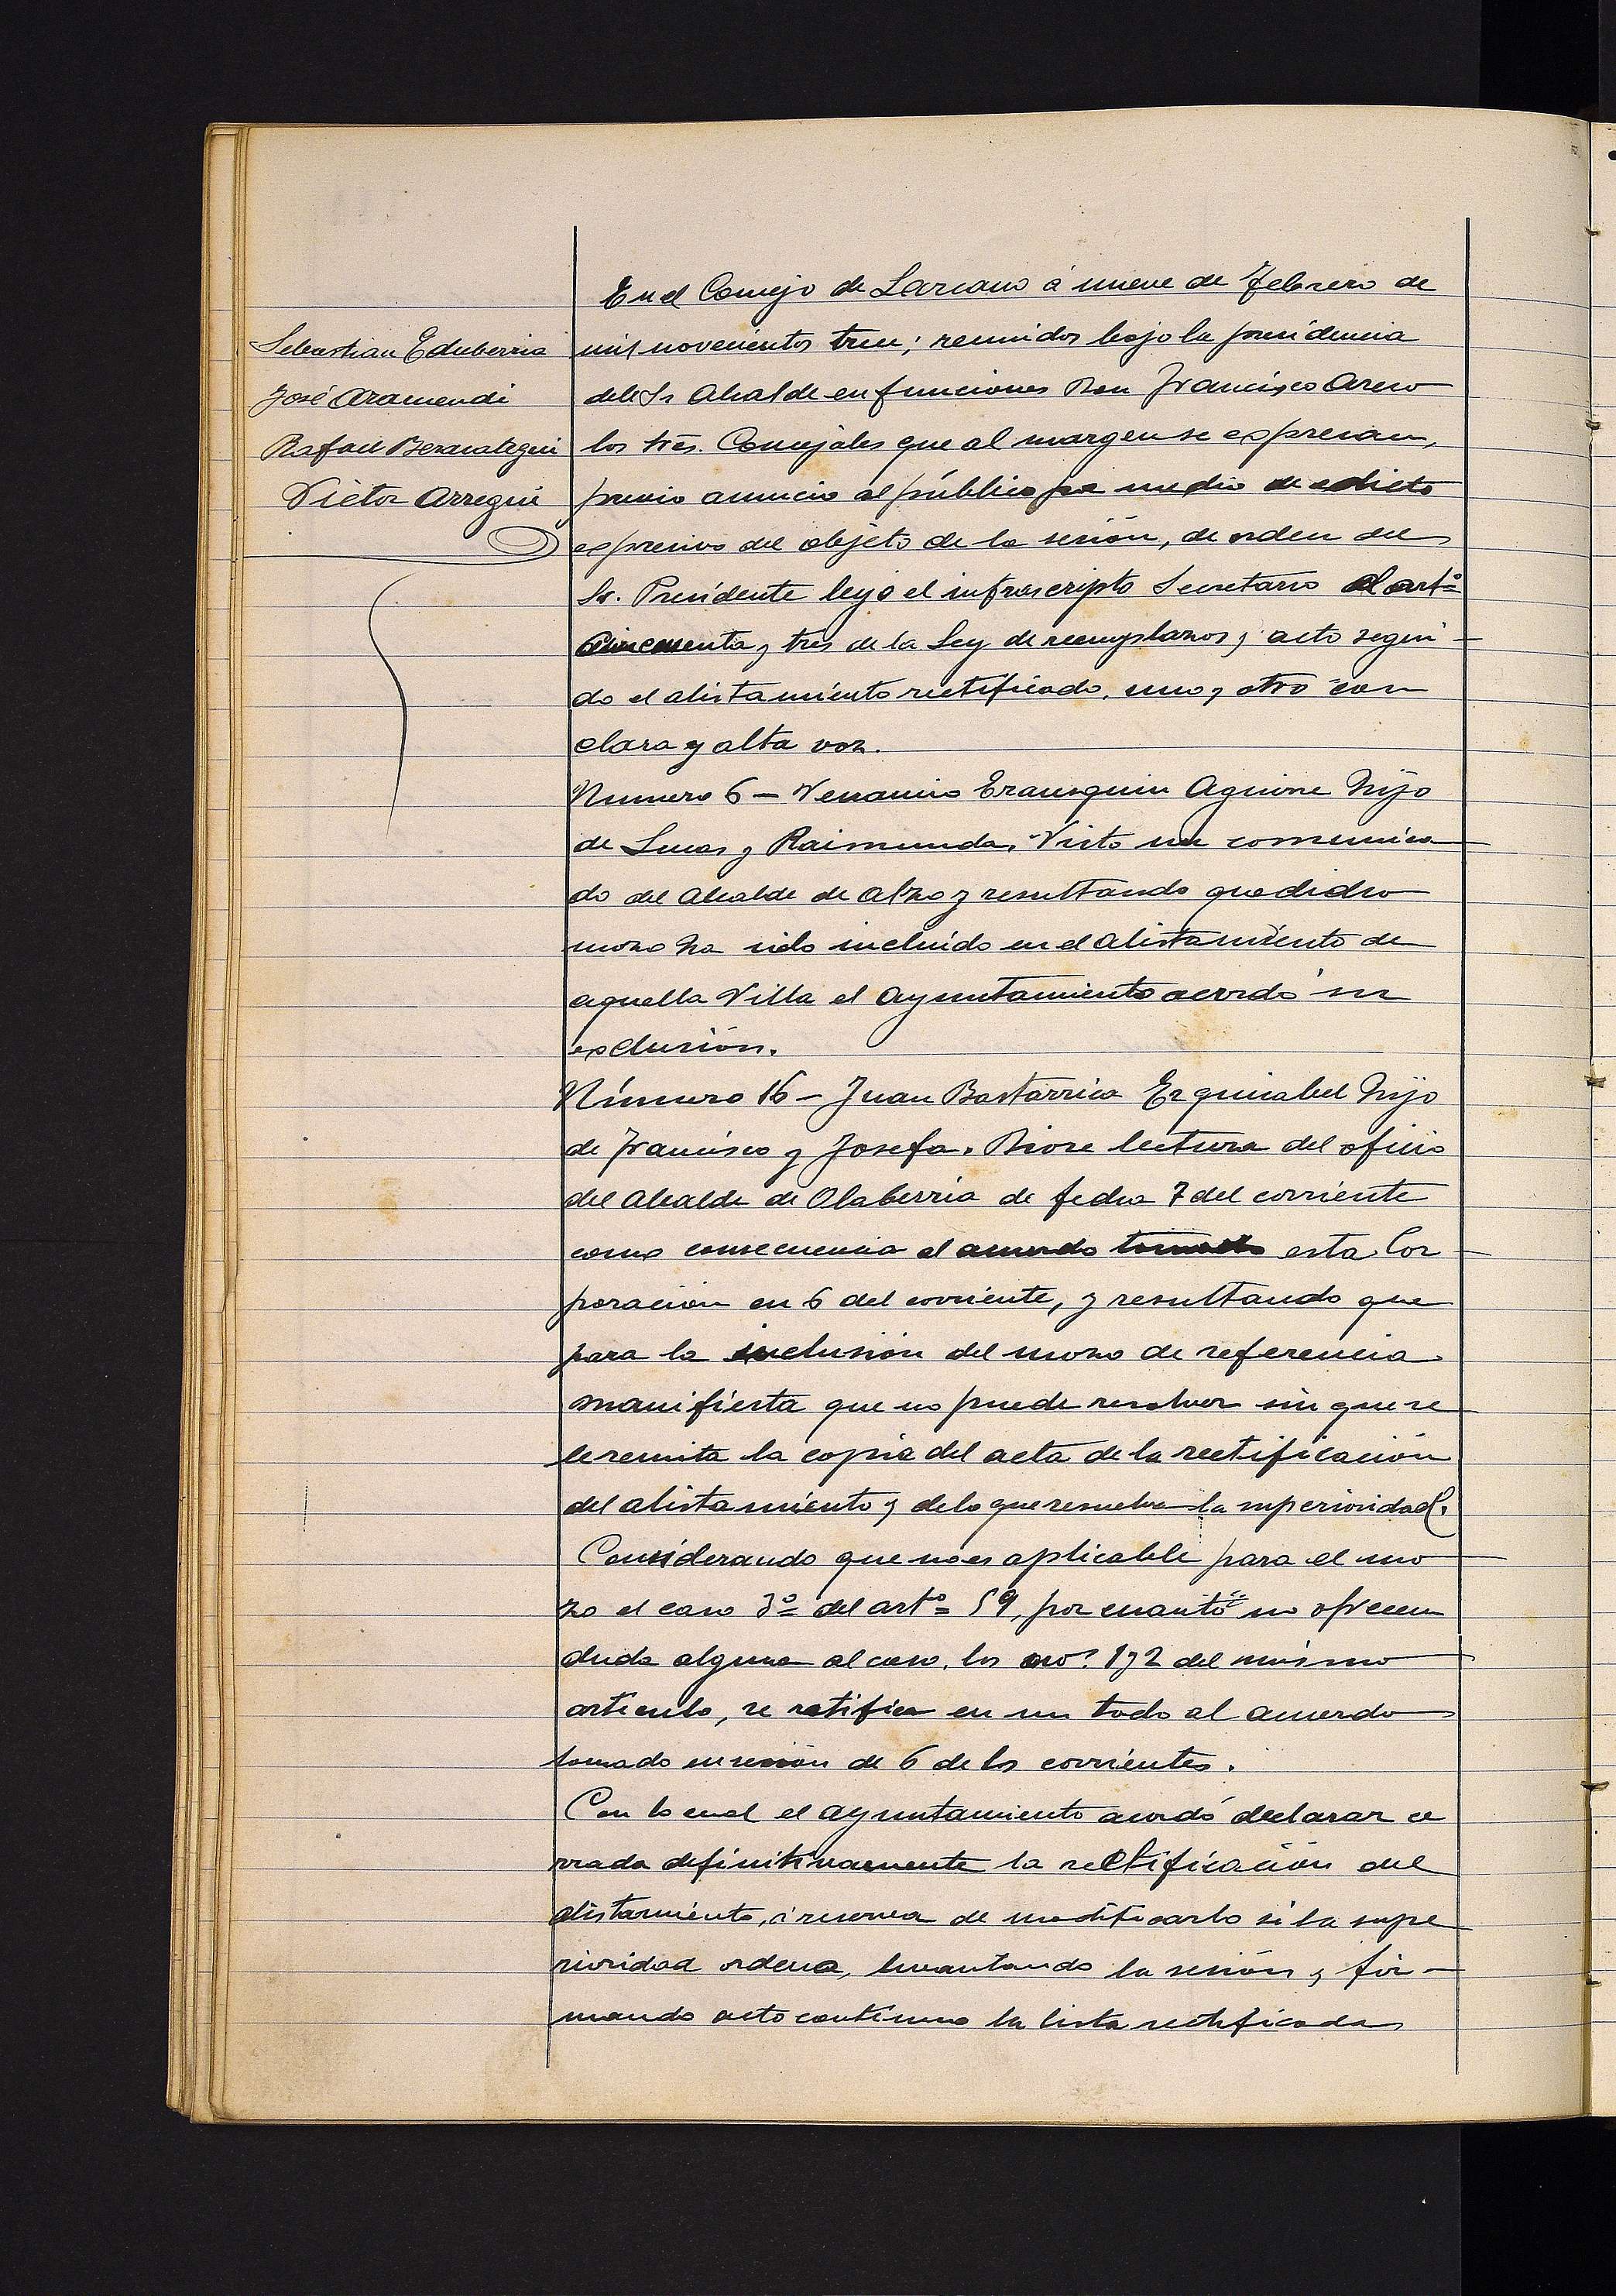 Sebastian Echeberria
José Aramendi
Rafael Berasategui
Victor Arregui
En el Concejo de Lazcano á nueve de Febrero de
mil novecientos trece; reunidos bajo la presidencia
del Sr Alcalde en funciones Don Francisco
los Sres. Concejales que al margen se expresan,
previo anuncio al público por medio de edicto
expresivo del objeto de la sesión, de orden del
Sr. Presidente leyó el infrascripto Secretario el artº
cincuenta y tres de la Ley de reemplazos y acto segui-
do el alistamiento rectificado, uno y otro con
clara y alta voz.
Numero 6 - Venancio Erausquin Aguirre hijo
de Lucas y Raimunda. Visto un comunica
do del Alcalde de Alzo y resultando que dicho
mozo ha sido incluido en el alistamiento de
aquella Villa el Ayuntamiento acordó su
exclusión.
Número 16 - Juan Bastarrica Ezquiabel hijo
de Francisco y Josefa. Diose lectura del oficio
del Alcalde de Olaberria de fecha 7 del corriente
como consecuencia al acuerdo esta Cor
poración en 6 del corriente, y resultando que
para la inclusión del mozo de referencia
manifiesta que no puede resolver sin que se
le remita la copia del acta de la rectificación
del alistamiento y de lo que resuelva la superioridad.
Considerando que no es aplicable para el mo
zo el caso 3º del artº 59, por cuanto no ofrecen
duda alguna al caso, los 1 y 2 del mismo
articulo, se ratifica en un todo al acuerdo
tomado en sesión de 6 de los corrientes.
Con lo cual el Ayuntamiento acordó declarar ce
rrada definitivamente la rectificación del
alistamiento, á reserva de modificarlo si la supe
rioridad ordena, levantando la sesión y fir-
mando acto continuo la lista rectificada